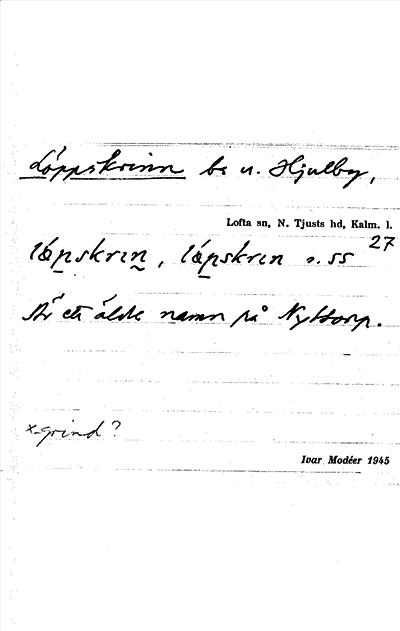 Löppskrinn be u. Hjulby,
Lofta sn, N. Tjusts hd, Kalm. l.
lǽpskrın, lǽpskrın o. ss 27
Är ett äldre namn på Nyttorp.
x-grind?
Ivar Modéer 1945